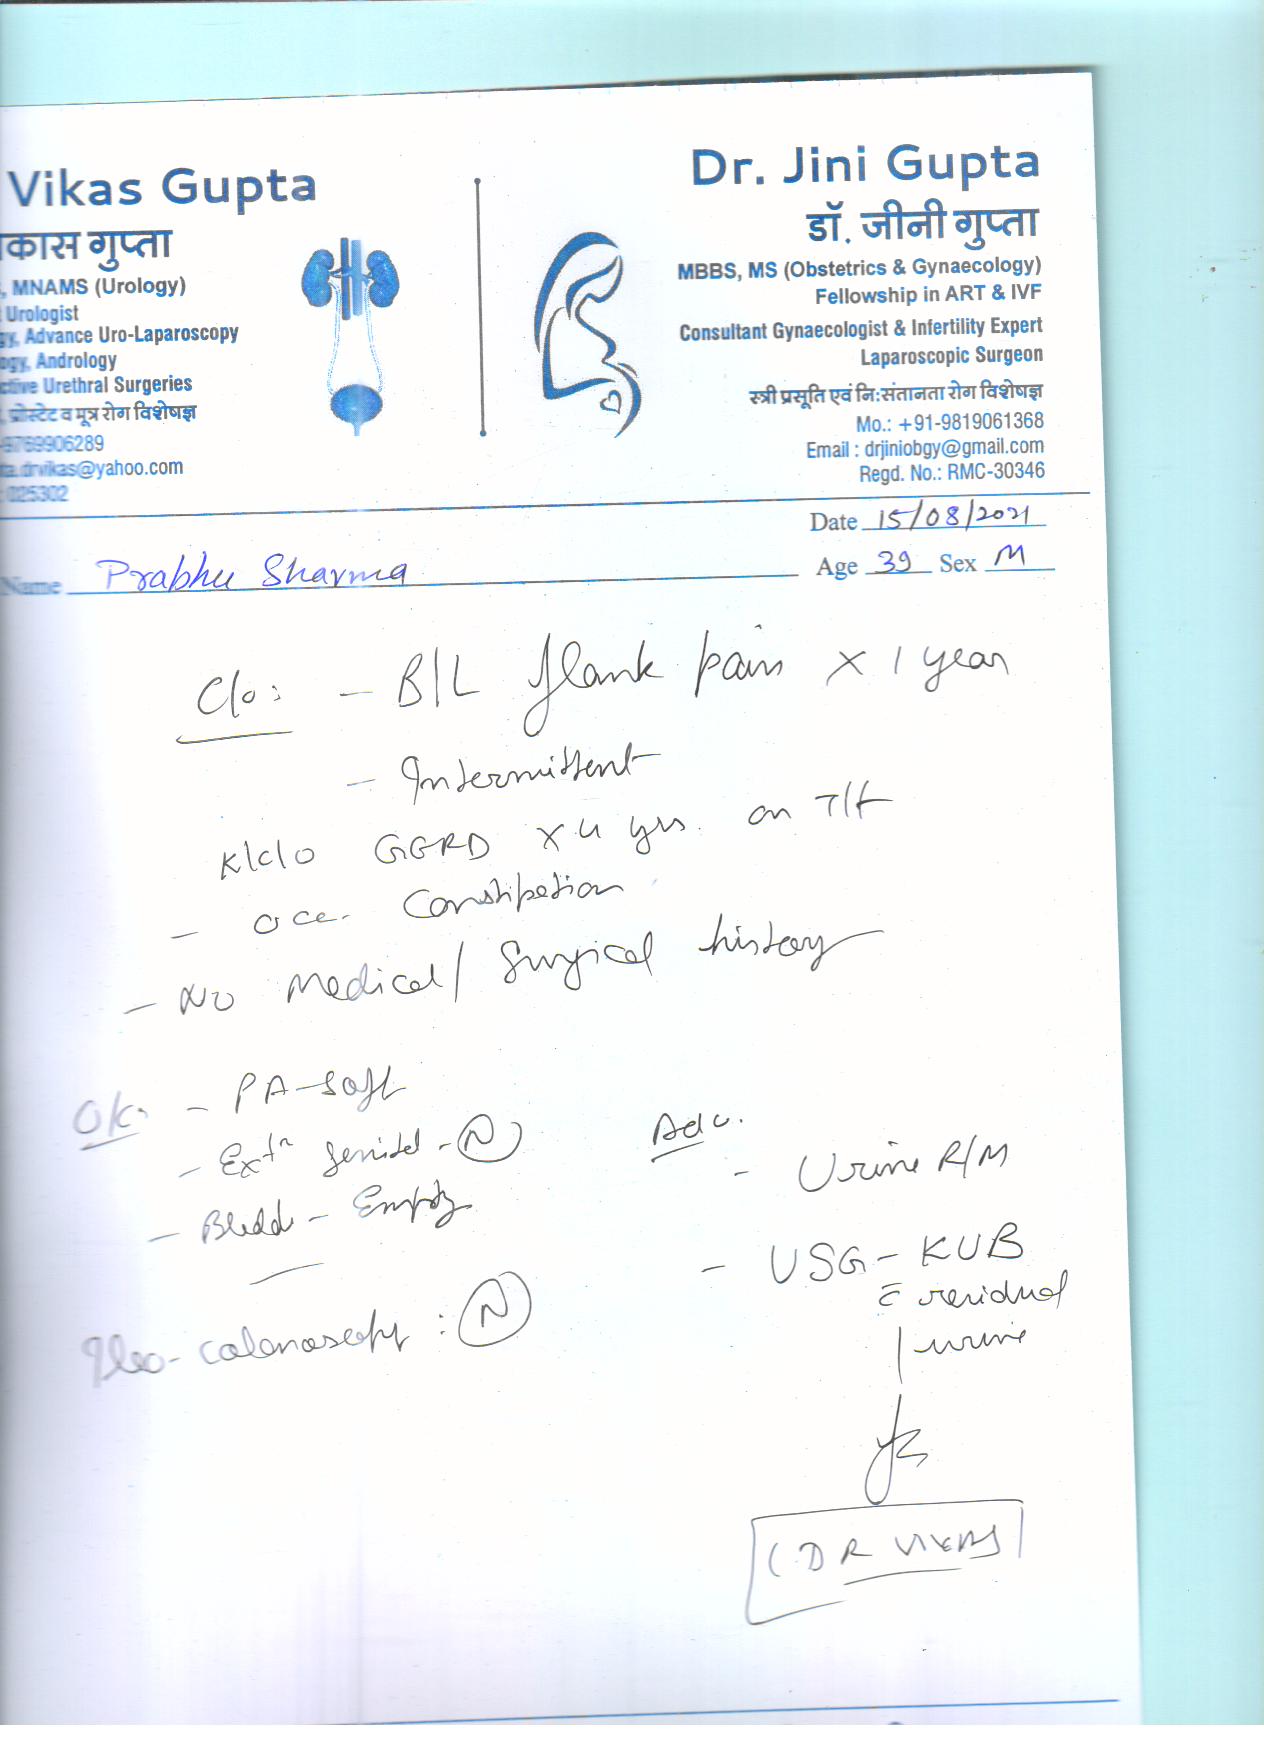 Vikas Gupta
कास गुप्ता
, MNAMS (Urology)
Urologist
gy, Advance Uro-Laparoscopy
ogy, Andrology
ctive Urethral Surgeries
प्रोस्टेट व मूत्र रोग विशेषज्ञ
-9769906289
ta.drvikas@yahoo.com
: 025302
Dr. Jini Gupta
डॉ. जीनी गुप्ता
MBBS, MS (Obstetrics & Gynaecology)
Fellowship in ART & IVF
Consultant Gynaecologist & Infertility Expert
Laparoscopic Surgeon
स्त्री प्रसूति एवं नि:संतानता रोग विशेषज्ञ
Mo.: +91-9819061368
Email : drjiniobgy@gmail.com
Regd. No.: RMC-30346
Date 15/08/2021
Name Prabhu Sharma Age 39 Sex M
C/o: - B/L flank pain x 1 year
- Intermittent
K/c/o GERD x 4 yrs. on T/t
- occ. Constipation
- No Medical/Surgical history
O/E: - PA-soft
- Extn genital - N
- Bladd - Empty
Ileo-colonoscopy : N
Adv.
- Urine R/M
- USG - KUB
c̄ residual
urine
(DR VIKAS)